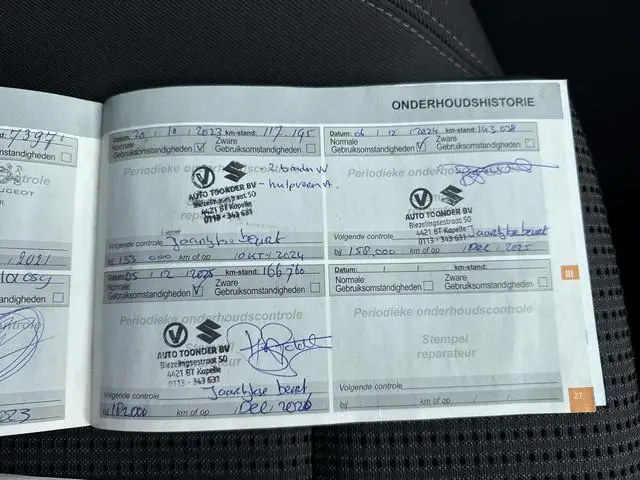 ONDERHOUDSHISTORIE
d: 7397
Normale Zware
standigheden Gebruiksomstandigheden
EUGEOT
2021
023
Datum: 30 / 10 / 2023 km-stand: 117.195
Normale Zware
Gebruiksomstandigheden Gebruiksomstandigheden
Periodieke controle
- hulpveer A.
AUTO TOONDER BV
Biezelingsestraat 50
4421 BT Kapelle
0113 - 343 631
Volgende controle Jaarlijkse beurt
bij 000 km of op 2024
Datum: 06 / 12 / 2024 km-stand: 143.038
Normale Zware
Gebruiksomstandigheden Gebruiksomstandigheden
Periodieke controle
AUTO TOONDER BV
Biezelingsestraat 50
4421 BT Kapelle
0113 - 343 631
Volgende controle Jaarlijkse beurt
bij 158,000 km of op Dec, 2025
Datum: 05 / 12 / 2025 km-stand: 166.760
Normale Zware
Gebruiksomstandigheden Gebruiksomstandigheden
Periodieke controle
Stempel
AUTO TOONDER BV
Biezelingsestraat 50
4421 BT Kapelle
0113 - 343 631
Volgende controle Jaarlijkse beurt
bij 182,000 km of op Dec, 2026
Datum: / / km-stand:
Normale Zware
Gebruiksomstandigheden Gebruiksomstandigheden
Periodieke controle
Stempel
reparateur
Volgende controle
bij km of op / /
III
27